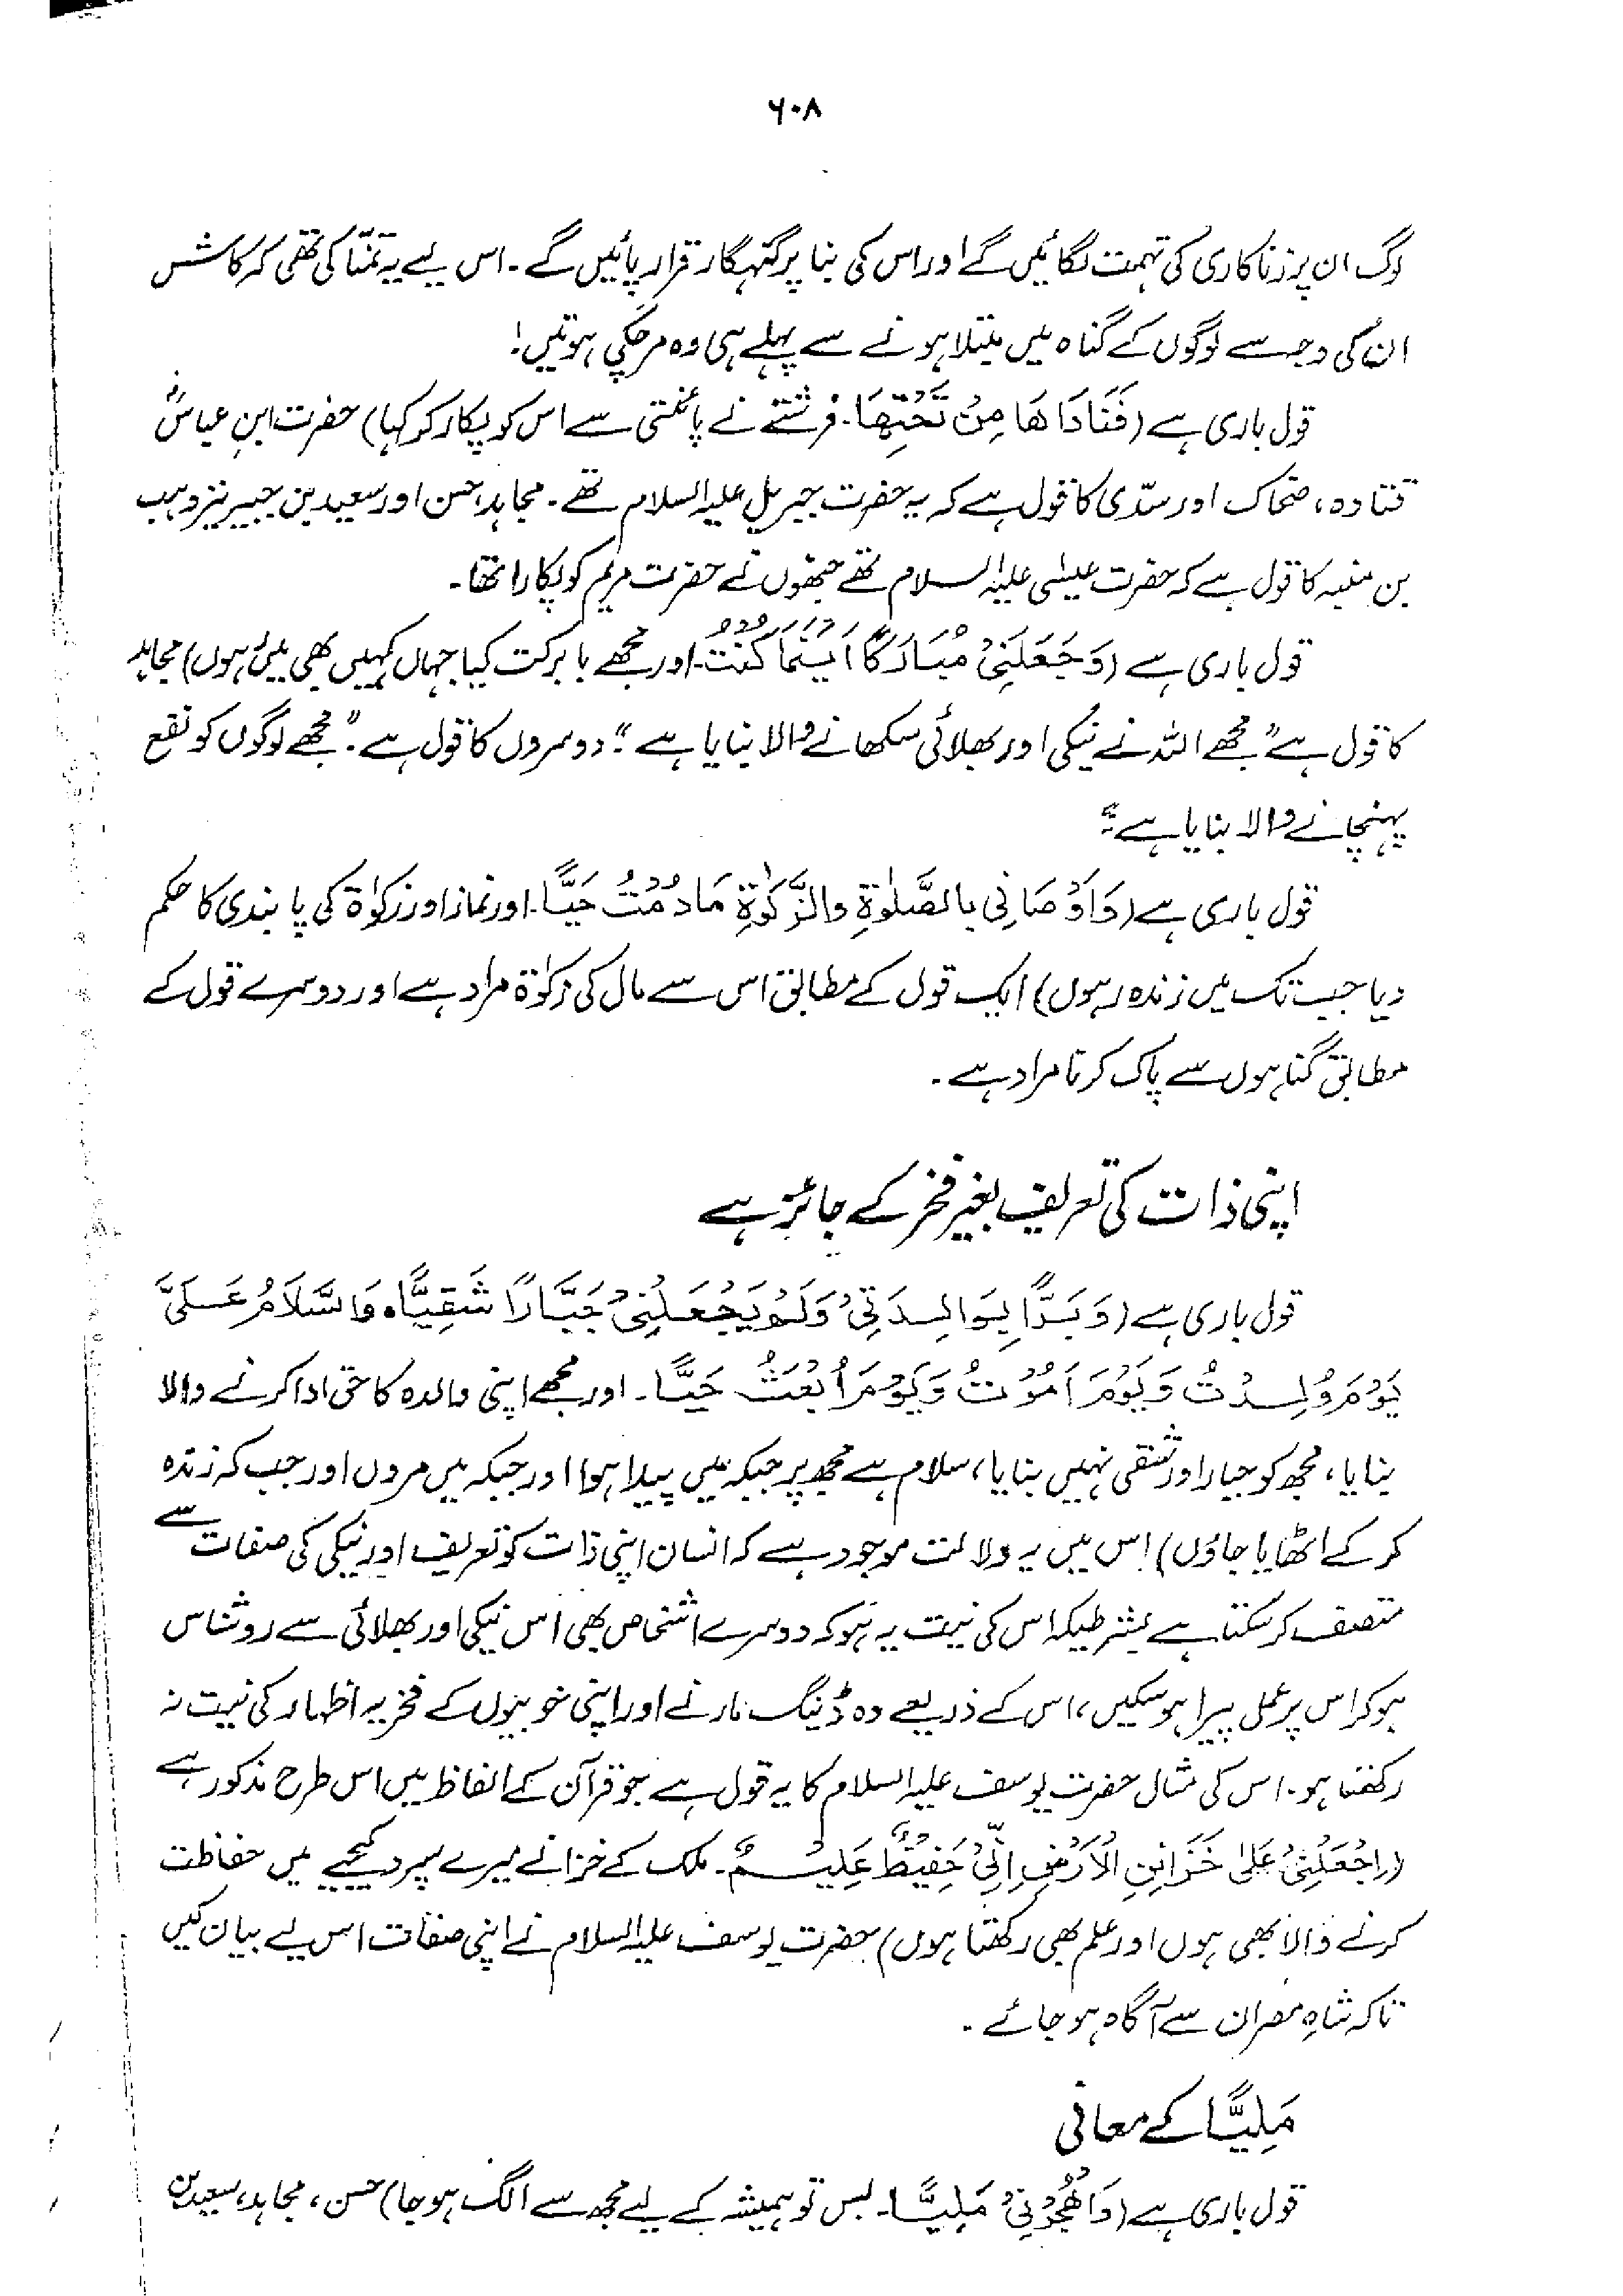 ۶۰۸
لوگ ان پر زنا کاری کی تہمت لگائیں گے اور اس کی بنا پر گنہگار قرار پائیں گے۔ اس لیے یہ تمنّا کی تھی کہ کاش
ان کی وجہ سے لوگوں کے گناہ میں مبتلا ہونے سے پہلے ہی وہ مر چکی ہوتیں!
قول باری ہے (فَنَادَاهَا مِنْ تَحْتِهَا۔ فرشتے نے پائنتی سے اس کو پکار کر کہا) حضرت ابنِ عباسؓ
قتادہ، ضحاک اور سدّی کا قول ہے کہ یہ حضرت جبریل علیہ السلام تھے۔ مجاہد، حسن اور سعید بن جبیر نیز وہب
بن منبہ کا قول ہے کہ حضرت عیسٰی علیہ السلام تھے جنھوں نے حضرت مریم کو پکارا تھا۔
قول باری ہے (وَجَعَلَنِیْ مُبَارَكًا اَيْنَمَا كُنْتُ۔ اور مجھے بابرکت کیا جہاں کہیں بھی میں ہوں) مجاہد
کا قول ہے "مجھے اللہ نے نیکی اور بھلائی سکھانے والا بنایا ہے"۔ دوسروں کا قول ہے۔ "مجھے لوگوں کو نفع
پہنچانے والا بنایا ہے"۔
قول باری ہے (وَاَوْصَانِی بالصَّلٰوۃِ والزَّکٰوۃِ مَادُمْتُ حَیًّا۔ اور نماز اور زکوٰۃ کی پابندی کا حکم
دیا جب تک میں زندہ رہوں) ایک قول کے مطابق اس سے مال کی زکوٰۃ مراد ہے اور دوسرے قول کے
مطابق گناہوں سے پاک کرنا مراد ہے۔
اپنی ذات کی تعریف بغیر فخر کے جائز ہے
قول باری ہے (وَبَرًّا بِوَالِدَتِیْ وَلَمْ يَجْعَلْنِیْ جَبَّارًا شَقِيًّا ہ وَالسَّلَامُ عَلَیَّ
يَوْمَ وُلِدْتُ وَيَوْمَ اَمُوْتُ وَيَوْمَ اُبْعَثُ حَيًّا۔ اور مجھے اپنی والدہ کا حق ادا کرنے والا
بنایا، مجھ کو جبار اور شقی نہیں بنایا، سلام ہے مجھ پر جبکہ میں پیدا ہوا اور جبکہ میں مروں اور جب کہ زندہ
کر کے اٹھایا جاؤں) اس میں یہ دلالت موجود ہے کہ انسان اپنی ذات کو تعریف اور نیکی کی صفات سے
متصف کر سکتا ہے بشرطیکہ اس کی نیت یہ ہو کہ دوسرے اشخاص بھی اس نیکی اور بھلائی سے روشناس
ہو کر اس پر عمل پیرا ہو سکیں، اس کے ذریعے وہ ڈینگ مارنے اور اپنی خوبیوں کے فخریہ اظہار کی نیت نہ
رکھتا ہو۔ اس کی مثال حضرت یوسف علیہ السلام کا یہ قول ہے جو قرآن کے الفاظ میں اس طرح مذکور ہے
(اِجْعَلْنِیْ عَلٰی خَزَائِنِ الْاَرْضِ اِنِّیْ حَفِيْظٌ عَلِيْمٌ۔ ملک کے خزانے میرے سپرد کیجیے میں حفاظت
کرنے والا بھی ہوں اور علم بھی رکھتا ہوں) حضرت یوسف علیہ السلام نے اپنی صفات اس لیے بیان کیں
تاکہ شاہِ مصر ان سے آگاہ ہو جائے۔
مَلِيًّا کے معانی
قول باری ہے (وَاهْجُرْنِیْ مَلِيًّا۔ بس تو ہمیشہ کے لیے مجھ سے الگ ہو جا) حسن، مجاہد، سعید بن